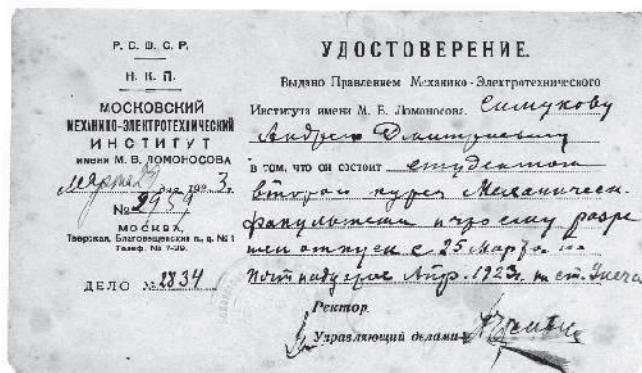 Р. С. Ф. С. Р.
Н. К. П.
МОСКОВСКИЙ
МЕХАНИКО-ЭЛЕКТРОТЕХНИЧЕСКИЙ
ИНСТИТУТ
имени М. В. ЛОМОНОСОВА
Марта 29 дня 1923 г.
№ 2959
МОСКВА,
Тверская, Благовещенский п., д. № 1
Телеф. № 7-39.
ДЕЛО № 2834
УДОСТОВЕРЕНИЕ.
Выдано Правлением Механико-Электротехнического
Института имени М. В. Ломоносова. Симукову
Андрею Дмитриевичу
в том, что он состоит студентом
второго курса Механическ.
факультета и что ему разре
шен отпуск с 25 Марта по
Апр. 1923 г. на ст.
Ректор.
Управляющий делами